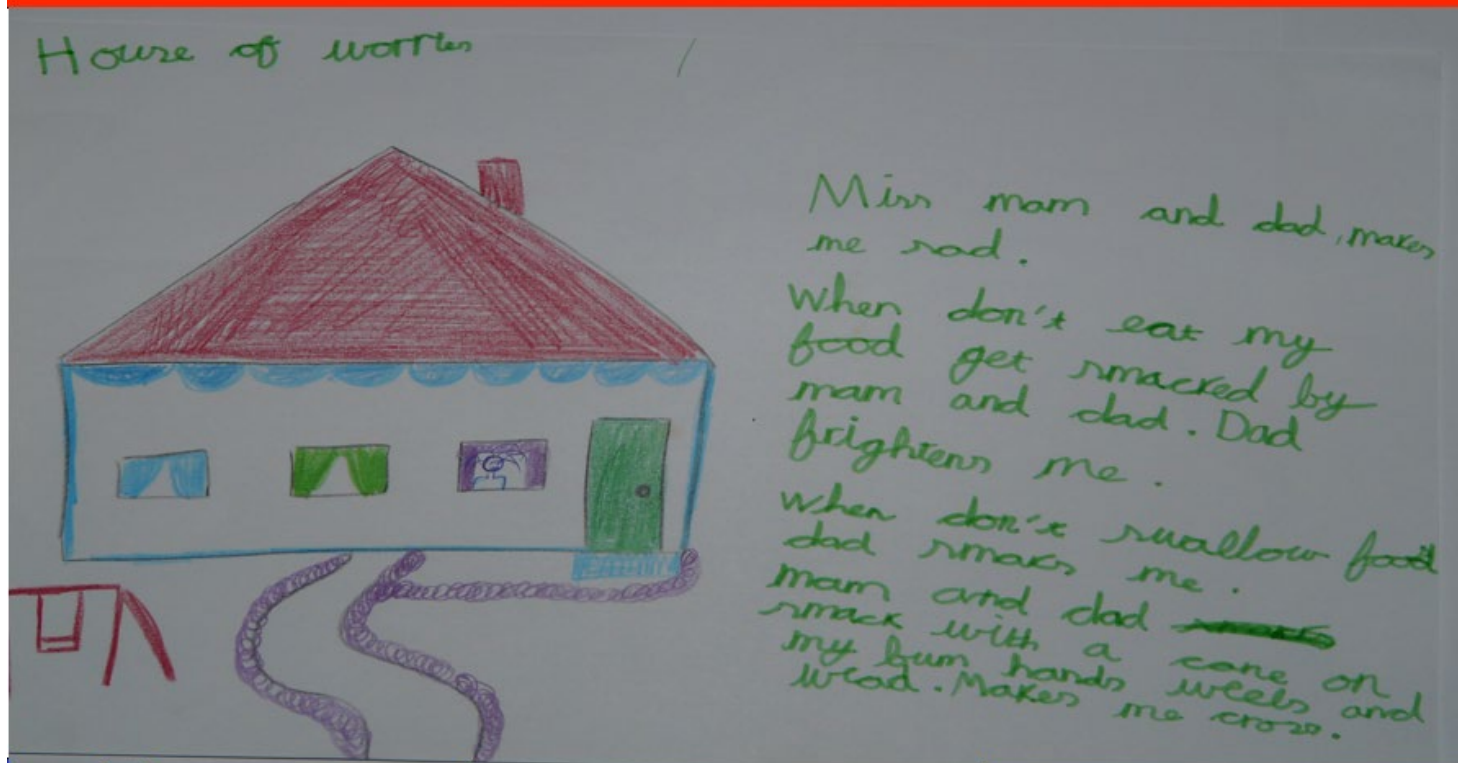 House of worries
Miss mam and dad, makes
me sad.
When don't eat my
food get smacked by
mam and dad. Dad
frightens me.
When don't swallow food
dad smaks me.
mam and dad
smack with a cane on
my bum hands weels and
Makes me cross.